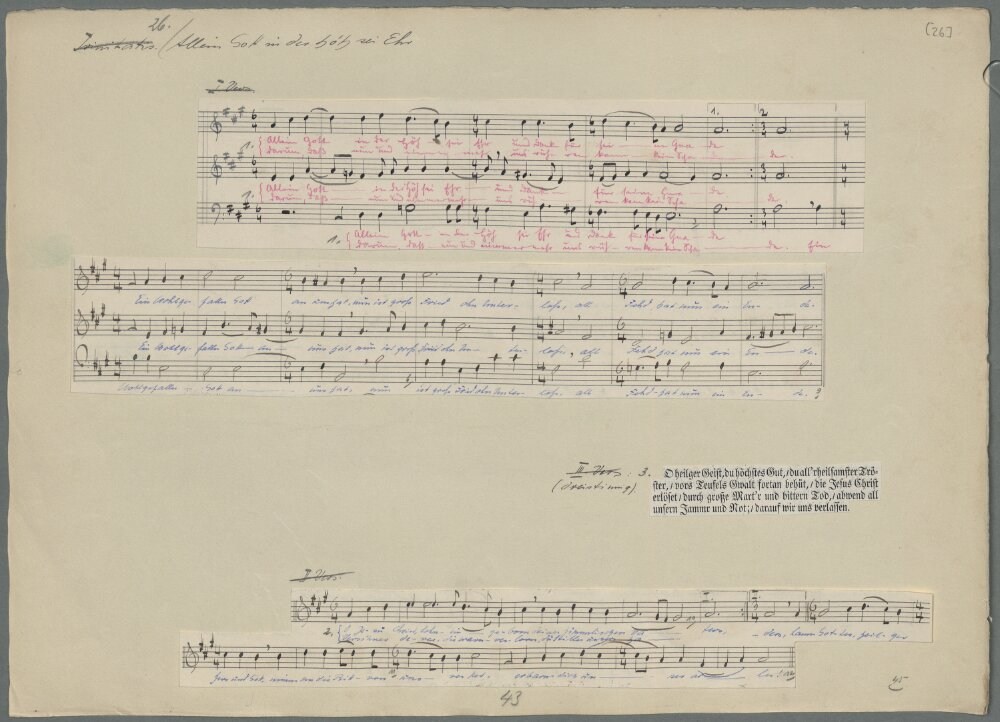 26.
[26]
Trinitatis. / Allein Gott in der Höh sei Ehr
I Vers.
1. 2
1. { Allein Gott in der Höh sei Ehr und Dank für sei - ne Gna - de
darum, daß nun und nimmer mehr uns rüh - ren kann kein Scha - de.
1. { Allein Gott in der Höh sei Ehr und Dank für seine Gna - de
darum, daß nun und nimmermehr uns rüh - ren kann kein Scha - de.
1. { Allein Gott - in der Höh sei Ehr und Dank für seine Gna - de
darum, daß nun und nimmer mehr uns rüh - ren kann kein Scha - de. Ein
Ein Wohlge - fallen Gott an uns hat, nun ist groß Fried ohn Unter - laß, all Fehd hat nun ein En - de.
Ein Wohlge - fallen Gott an uns hat, nun ist groß Fried ohn Un - ter - laß, all Fehd hat nun ein En - de.
Wohlgefallen - Gott an uns hat, nun ist groß Fried ohn Unter - laß, all Fehd - hat nun ein En - de.
III Vers : 3.
(dreistimmig)
O heilger Geist, du höchstes Gut, / du all'rheilsamster Trö-
ster, / vors Teufels Gwalt fortan behüt, / die Jesus Christ
erlöset / durch große Mart'r und bittern Tod, / abwend all
unsern Jammr und Not; / darauf wir uns verlassen.
II Vers.
I. II.
2. { O Je - su Christ, Sohn ein - ge - born deines himmlischen Va - ters,
der - den, Lamm Gottes, heil - ger
Herr und Gott, nimm an die Bitt von unsrer Not, erbarm dich un - ser al - ler.
43
45